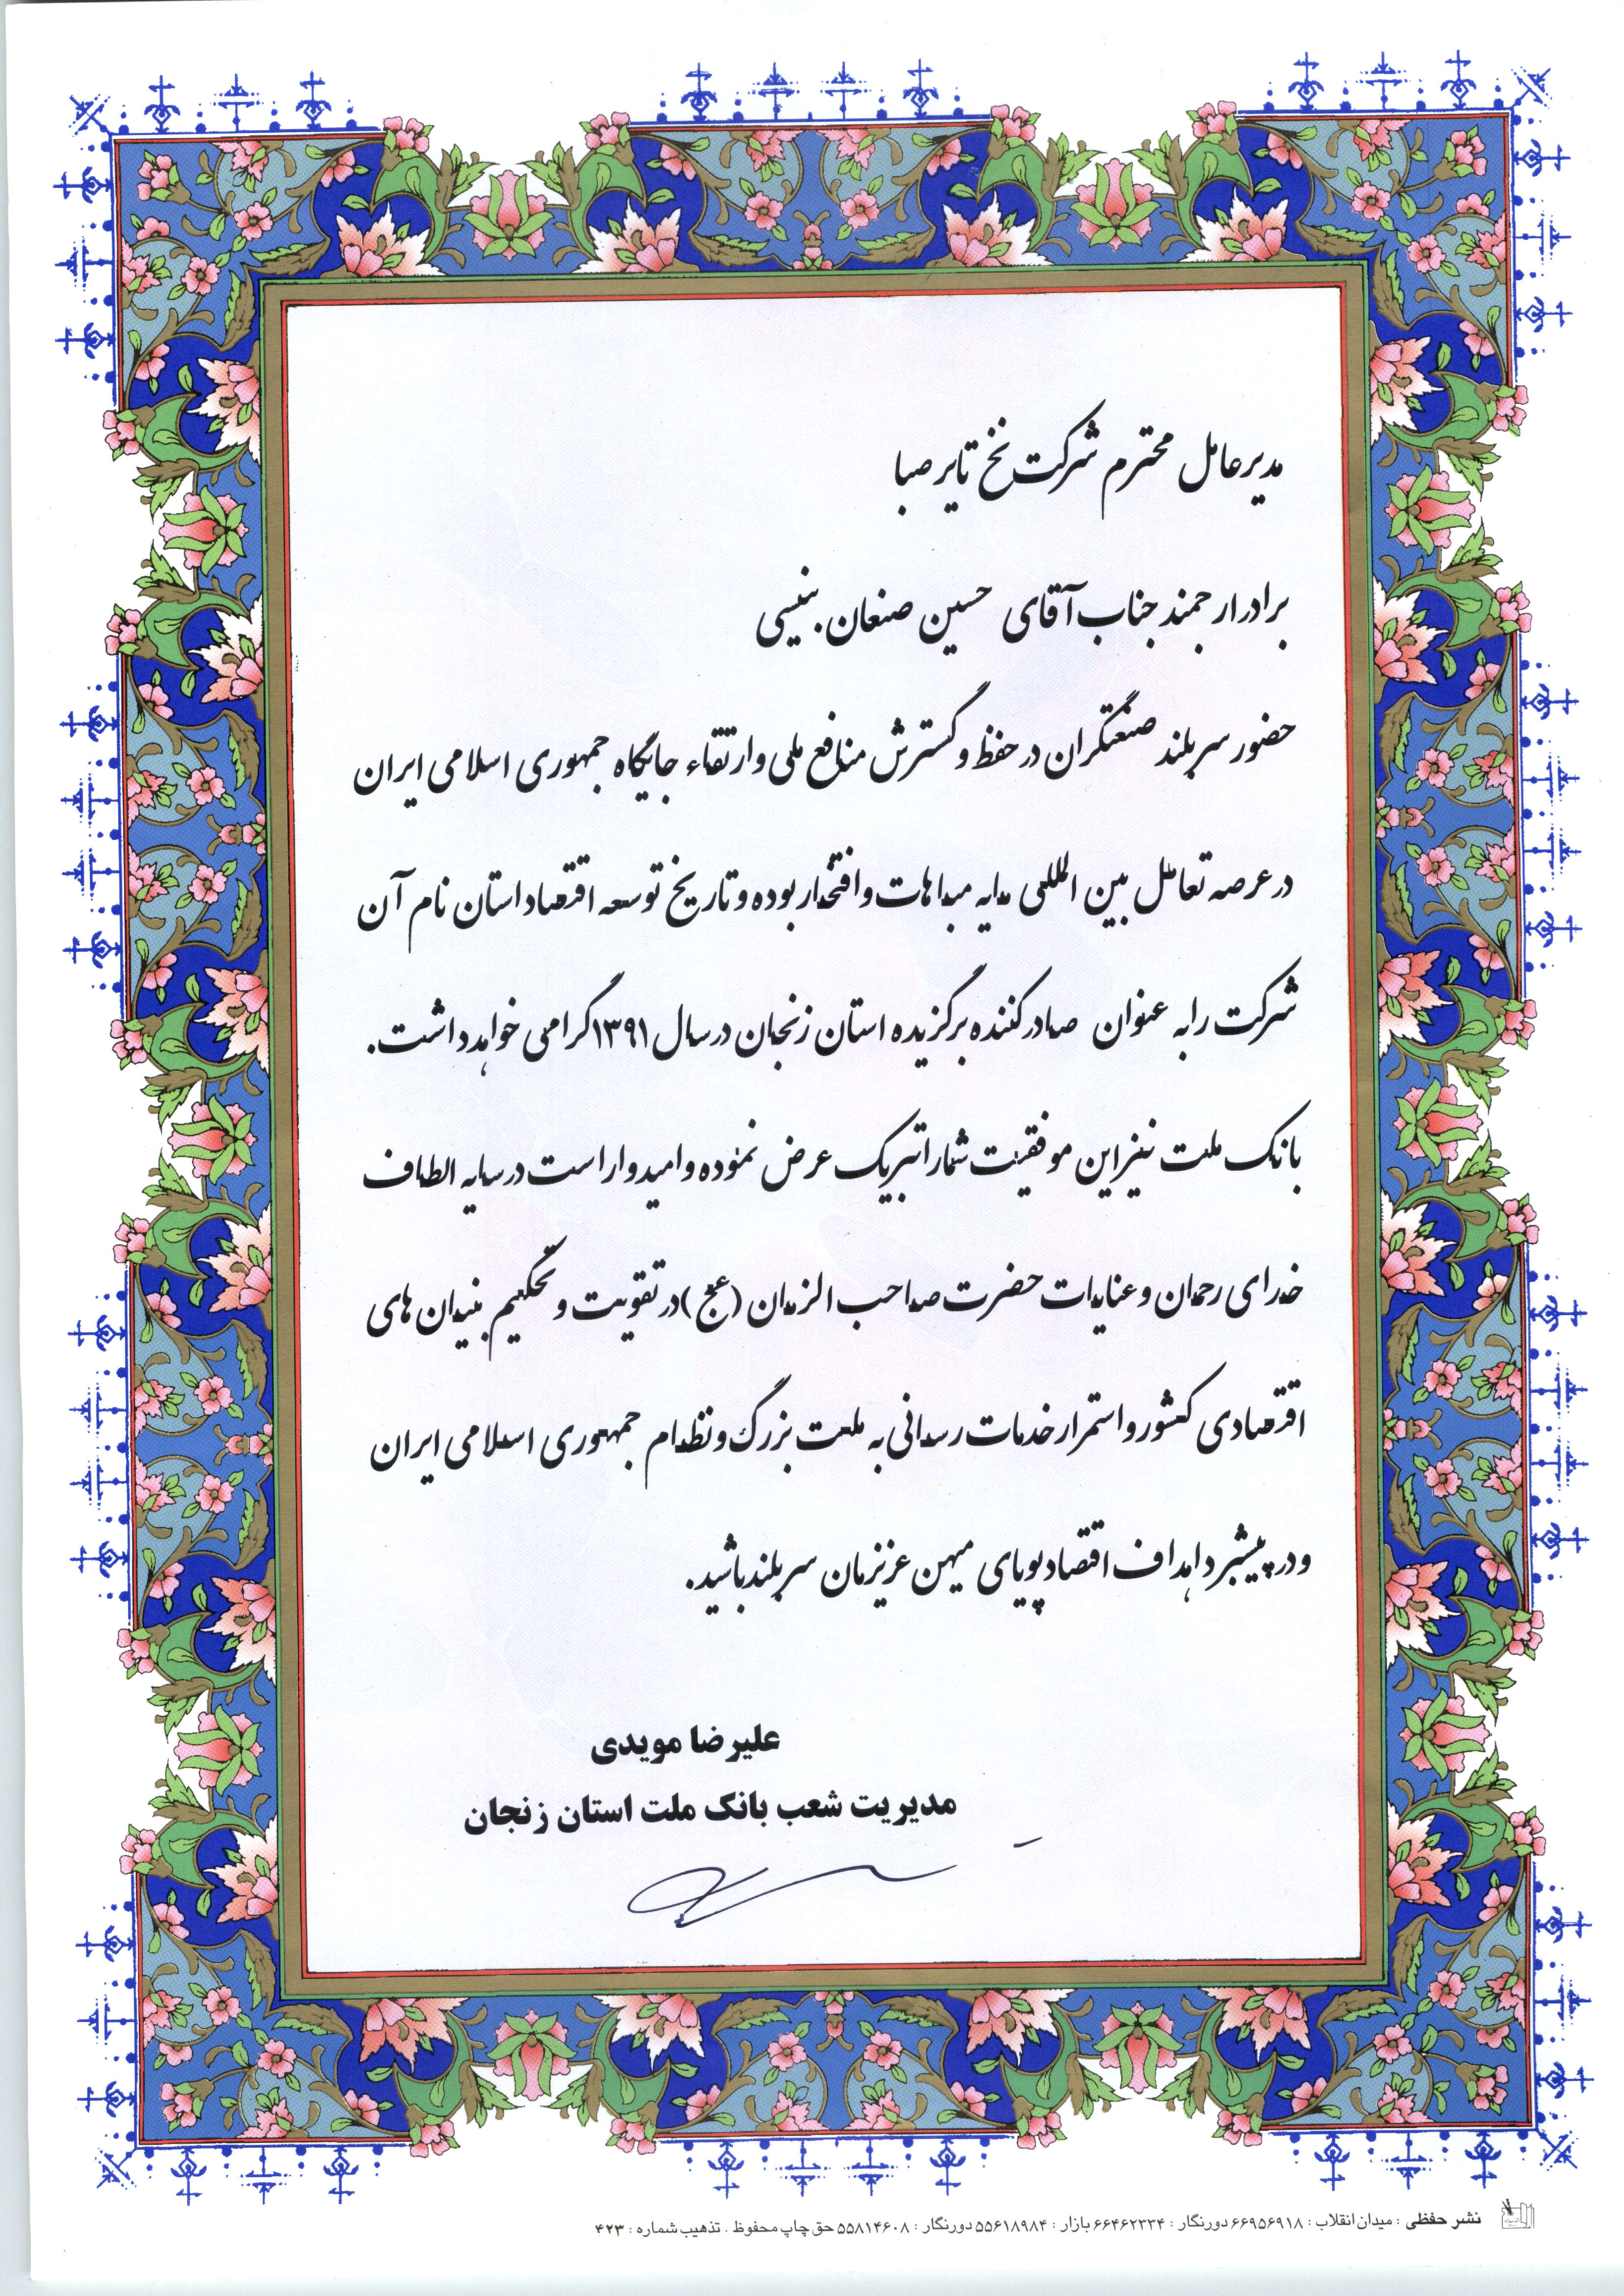 مدیرعامل محترم شرکت نخ تایر صبا
برادر ارجمند جناب آقای حسین صنعان بنیسی
حضور سربلند صنعتگران در حفظ و گسترش منافع ملی و ارتقاء جایگاه جمهوری اسلامی ایران
در عرصه تعامل بین المللی مایه مباهات و افتخار بوده و تاریخ توسعه اقتصاد استان نام آن
شرکت را به عنوان صادر کننده برگزیده استان زنجان در سال ۱۳۹۱ گرامی خواهد داشت.
بانک ملت نیز این موفقیت شما را تبریک عرض نموده و امیدوار است در سایه الطاف
خدای رحمان و عنایات حضرت صاحب الزمان (عج) در تقویت و تحکیم بنیان های
اقتصادی کشور و استمرار خدمات رسانی به ملت بزرگ و نظام جمهوری اسلامی ایران
و در پیشبرد اهداف اقتصاد پویای میهن عزیزمان سربلند باشید.
علیرضا مویدی
مدیریت شعب بانک ملت استان زنجان
نشر حفظی : میدان انقلاب : ۶۶۹۵۶۹۱۸ دورنگار : ۶۶۴۶۲۳۳۴ بازار : ۵۵۶۱۸۹۸۴ دورنگار : ۵۵۸۱۴۶۰۸ حق چاپ محفوظ . تذهیب شماره : ۴۲۳